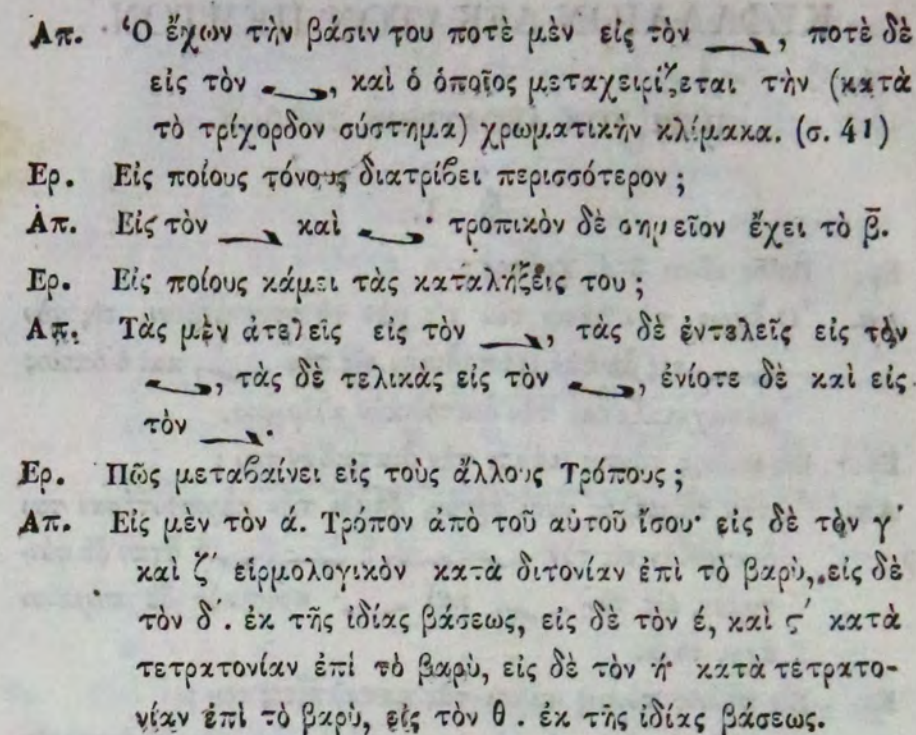 Απ. Ὁ ἔχων τὴν βάσιν του ποτὲ μὲν εἰς τὸν , ποτὲ δὲ
εἰς τὸν , καὶ ὁ ὁποῖος μεταχειρίζεται τὴν (κατὰ
τὸ τρίχορδον σύστημα) χρωματικὴν κλίμακα. (σ. 41)
Ερ. Εἰς ποίους τόνους διατρίβει περισσότερον ;
Απ. Εἰς τὸν καὶ · τροπικὸν δὲ σημεῖον ἔχει τὸ β̄.
Ερ. Εἰς ποίους κάμει τὰς καταλήξεις του ;
Απ. Τὰς μὲν ἀτελεῖς εἰς τὸν , τὰς δὲ ἐντελεῖς εἰς τὸν
, τὰς δὲ τελικὰς εἰς τὸν , ἐνίοτε δὲ καὶ εἰς
τὸν .
Ερ. Πῶς μεταβαίνει εἰς τοὺς ἄλλους Τρόπους ;
Απ. Εἰς μὲν τὸν ά. Τρόπον ἀπὸ τοῦ αὐτοῦ ἴσου· εἰς δὲ τὸν γ΄
καὶ ζ΄ εἱρμολογικὸν κατὰ διτονίαν ἐπὶ τὸ βαρὺ, εἰς δὲ
τὸν δ΄. ἐκ τῆς ἰδίας βάσεως, εἰς δὲ τὸν έ, καὶ ϛ΄ κατὰ
τετρατονίαν ἐπὶ τὸ βαρὺ, εἰς δὲ τὸν ή· κατὰ τετρατο-
νίαν ἐπὶ τὸ βαρὺ, εἰς τὸν θ . ἐκ τῆς ἰδίας βάσεως.